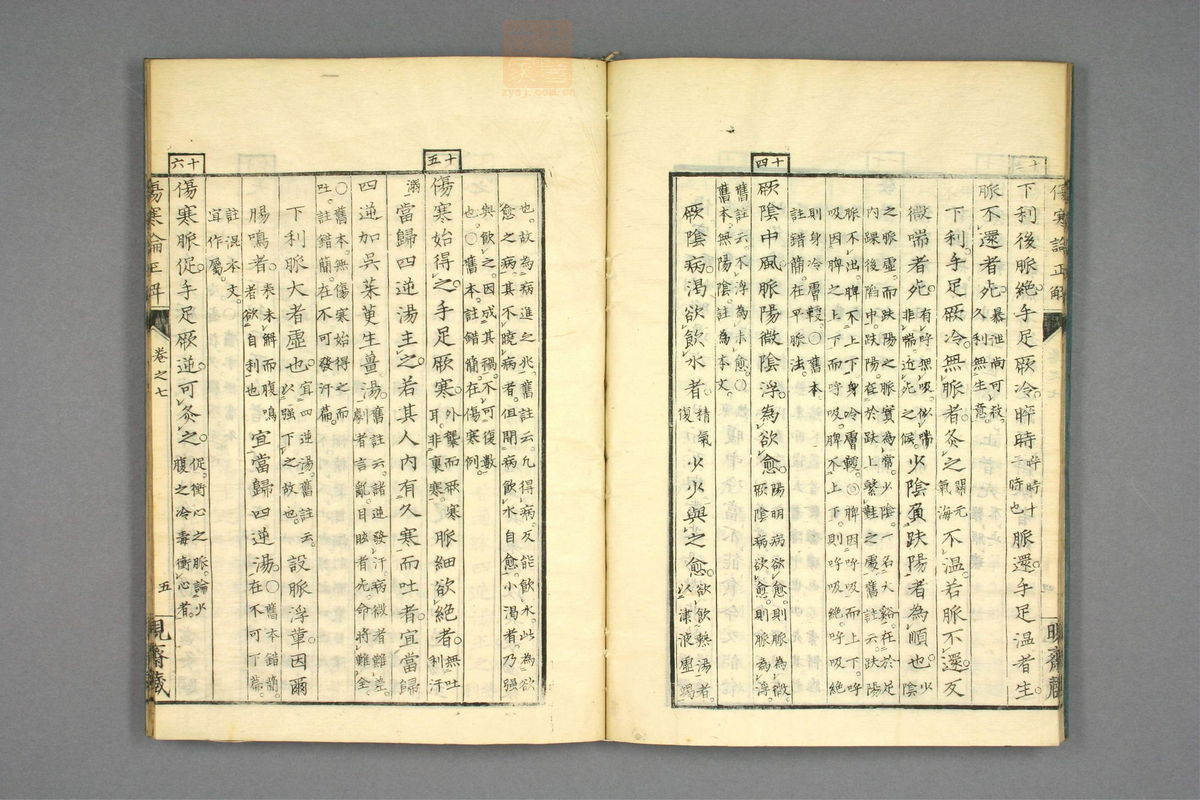 傷寒論正解
十三
下利後脈絕手足厥冷晬時晬時十二時也脈還手足溫者生
脈不還者死暴泄尚可救久利無生意
下利手足厥冷無脈者灸之關元氣海不溫若脈不還反
微喘者死有呼無吸似喘非喘近死之候少陰負趺陽者為順也少陰
之脈虛而趺陽之脈實為常少陰一名大谿在於足
內踝後陷中趺陽在於趺上繫鞋之處舊註云趺陽
脈不出脾不上下身冷膚鞕○脾因呼吸而上下呼
吸因脾之上下而呼吸脾不上下則呼吸絕呼吸絕
則身冷膚鞕○舊本
註錯簡在平脈法
十四
厥陰中風脈陽微陰浮為欲愈陽明病欲愈則脈為微厥陰病欲愈則脈為浮
舊註云不浮為未愈○
舊本無陽陰註為本文
厥陰病渴欲飲水者精氣復少少與之愈欲飲熱湯者以津液虛竭
也故為病進之兆舊註云凡得病反能飲水此為欲
愈之病其不曉病者但聞病飲水自愈小渴者乃強
與飲之因成其禍不可復數
也○舊本註錯簡在傷寒例
十五
傷寒始得之手足厥寒外襲而厥寒耳非裏寒脈細欲絕者無吐利汗
當歸四逆湯主之若其人內有久寒而吐者宜當歸
四逆加吳茱萸生薑湯舊註云諸逆發汗病微者難差劇者言亂目眩者死命將難全
○舊本無傷寒始得之而
吐註錯簡在不可發汗篇
下利脈大者虛也宜四逆湯舊註云以強下之故也設脈浮革因爾
腸鳴者表未解而腹鳴者欲自利也宜當歸四逆湯○舊本錯簡在不可下篇
註混本文
宜作屬
十六
傷寒脈促手足厥逆可灸之促衝心之脈論火腹之冷毒衝心者
傷寒論正解
卷之七
五